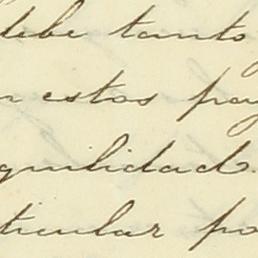 debe tanto
n estos pay
quilidad.
ticular po